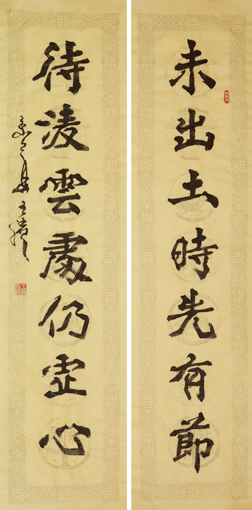 未出土時先有節
待凌雲處仍虛心